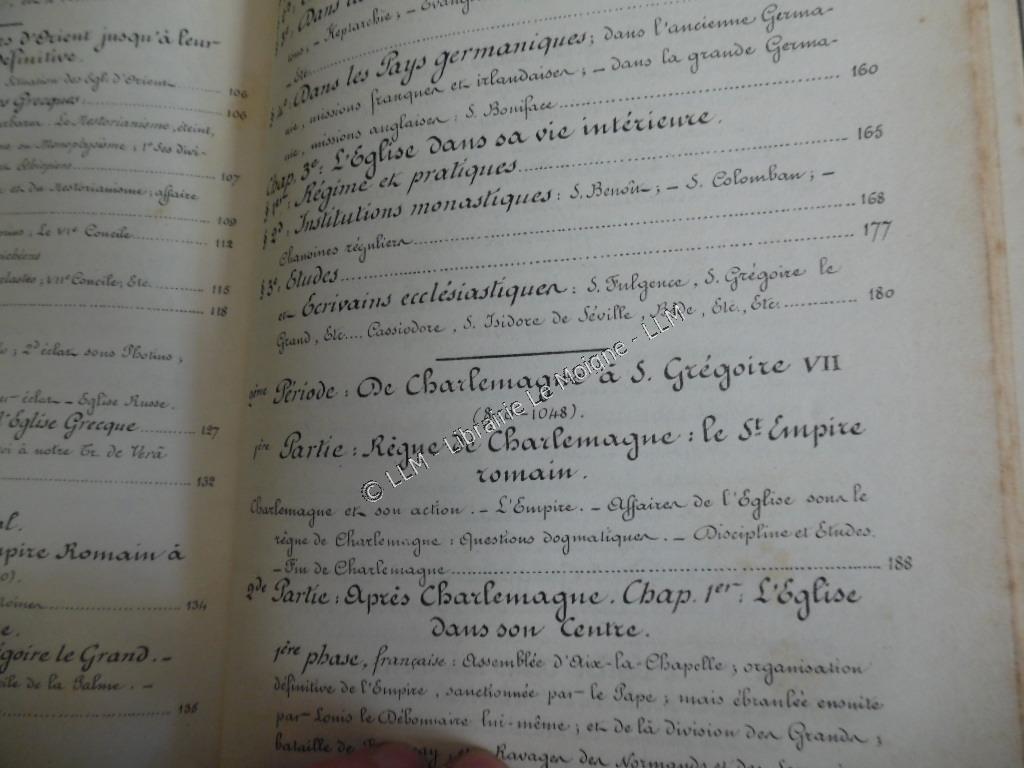 rs d'Orient jusqu'à leur
définitive.
Situation des Egl. d'Orient 106
Grecques 106
Le Nestorianisme, éteint,
ou Monophysisme ; 1° Ses divi-
107
et du Nestorianisme ; affaire
109
Le VIe Concile 112
VIIe Concile, Etc. 115
118
2d éclat sous Photius ;
éclat - Eglise Russe.
l'Eglise Grecque 127
à notre Tr. de Verâ
132
al.
mpire Romain à
134
e.
égoire le Grand. -
de la Palme. -
136
§ Dans
- Heptarchie ; -
- Etc.
§ 4e Dans les Pays germaniques ; dans l'ancienne Germa-
nie, missions franques et irlandaises ; - dans la grande Germa-
nie, missions anglaises : S. Boniface 160
Chap. 3e : L'Eglise dans sa vie intérieure.
§ 1er, Régime et pratiques 165
§ 2d, Institutions monastiques : S. Benoît ; - S. Colomban ; -
Chanoines réguliers 168
§ 3e, Etudes 177
et Ecrivains ecclésiastiques : S. Fulgence, S. Grégoire le
Grand, Etc.... Cassiodore, S. Isidore de Séville, Bède, Etc., Etc. 180
2ème Période : De Charlemagne à S. Grégoire VII
1048).
1ère Partie : Règne de Charlemagne : le St Empire
romain.
Charlemagne et son action. - L'Empire. - Affaires de l'Eglise sous le
règne de Charlemagne : Questions dogmatiques. - Discipline et Etudes.
- Fin de Charlemagne 188
2de Partie : Après Charlemagne. Chap. 1er : L'Eglise
dans son Centre.
1ère phase, française : Assemblée d'Aix-la-Chapelle ; organisation
définitive de l'Empire, sanctionnée par le Pape ; mais ébranlée ensuite
par Louis le Débonnaire lui-même ; et de là division des Grands ;
bataille de Ravages des Normands et des
© LLM - Librairie Le Moigne - LLM